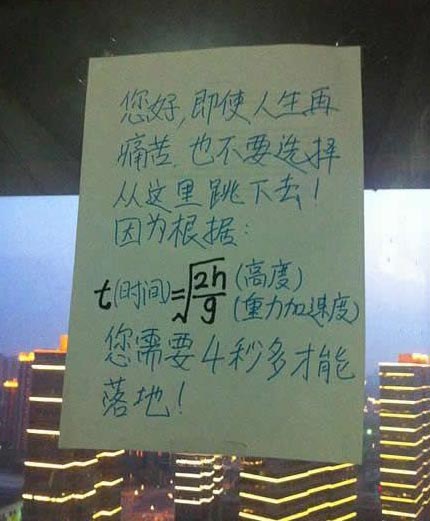 您好,即使人生再
痛苦,也不要选择
从这里跳下去!
因为根据:
t(时间)=√2h/g (高度)
(重力加速度)
您需要4秒多才能
落地!